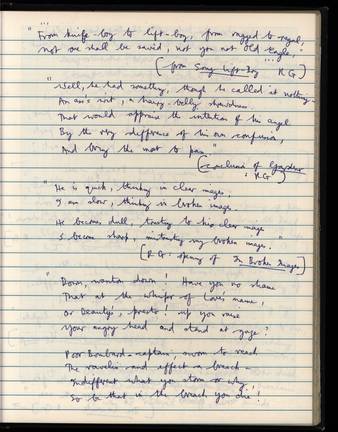 ...
"From knife-boy to lift-boy, from ragged to regal,
not one shall be saved, not you, not Old Eagle,"
(from Song: Lift-Boy ... RG)
"Well, he had something, though he called it nothing -
An ass's wit, a hairy-belly shrewdness
That would appraise the intention of his angel
By the very difference of his own confusion,
And bring the most to pass."
(conclusion of Gardener: RG)
"He is quick, thinking in clear images,
I am slow, thinking in broken images.
He becomes dull, trusting to his clear images
I become sharp, mistrusting my broken images."
(RG: opening of In Broken Images)
"Down, wanton, down! Have you no shame
That at the whisper of Love's name,
Or Beauty's, presto! up you raise
Your angry head and stand at gaze?
Poor Bombard-captain, sworn to reach
The ravelin and effect a breach -
Indifferent what you storm or why,
So be that in the breach you die!